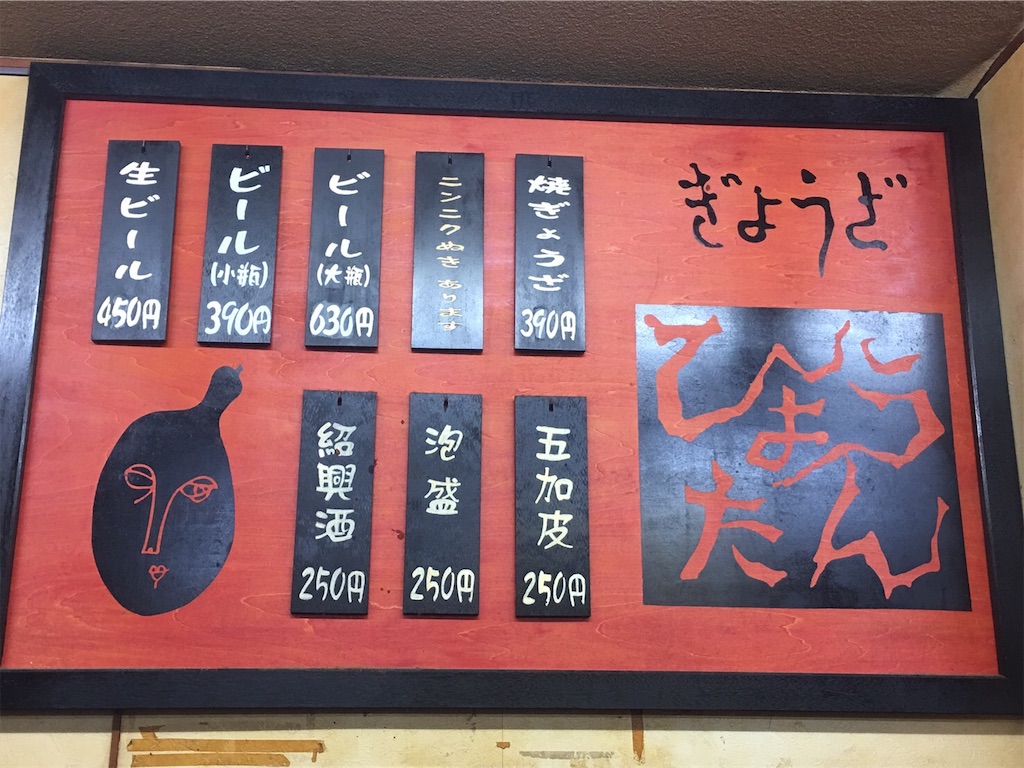 ぎょうざ
ひょうたん
焼ぎょうざ
390円
ニンニクぬきあります
ビール
(大瓶)
630円
ビール
(小瓶)
390円
生ビール
450円
五加皮
250円
泡盛
250円
紹興酒
250円